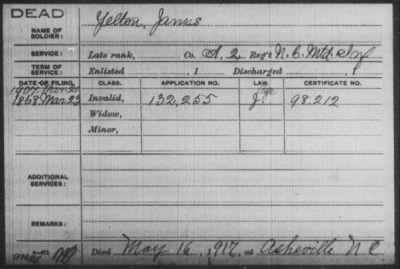 DEAD
NAME OF SOLDIER: Yelton, James
SERVICE: Late rank, Co. A, 2 Reg't N.C. Mtd. Inf.
TERM OF SERVICE: Enlisted , 1 Discharged , 1
DATE OF FILING. CLASS. APPLICATION NO. LAW. CERTIFICATE NO.
1868 Mar 23 Invalid, 132,255 98.212
Widow,
Minor,
ADDITIONAL SERVICES:
REMARKS:
Died May 16, 1917, at Asheville N C